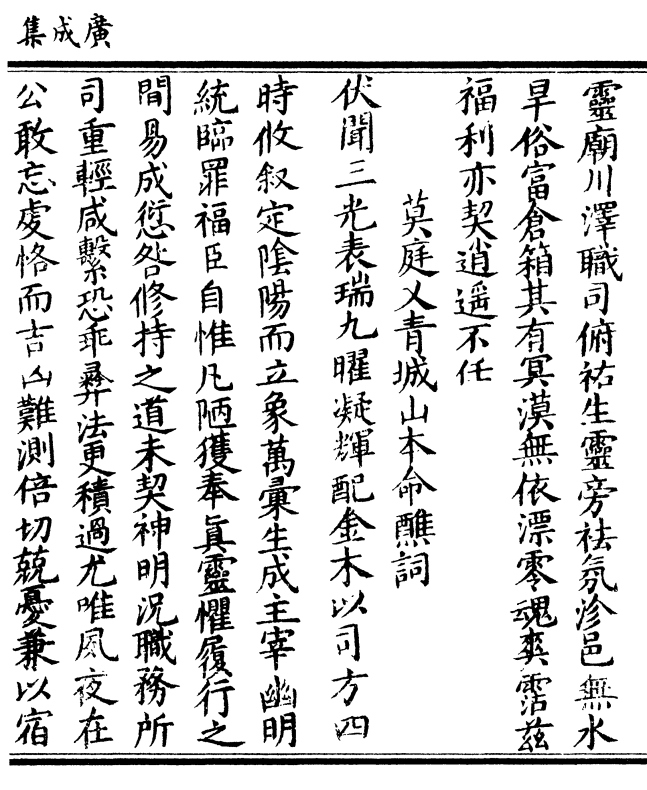 廣成集
靈廟川澤職司俯祐生靈旁祛氛沴邑無水
旱俗富倉箱其有冥漠無依漂零魂爽霑茲
福利亦契逍遥不任
莫庭乂青城山本命醮詞
伏聞三光表瑞九曜凝輝配金木以司方四
時攸叙定陰陽而立象萬彙生成主宰幽明
統臨罪福臣自惟凡陋獲奉眞靈懼履行之
間易成愆咎修持之道未契神明況職務所
司重輕咸繫恐乖彝法更積過尤唯夙夜在
公敢忘虔恪而吉凶難測倍切兢憂兼以宿